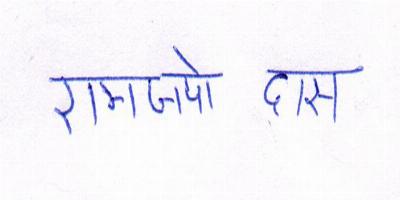 रामजपो दास